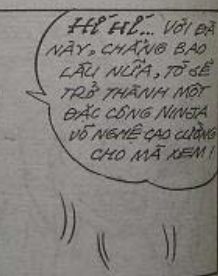 HÍ HÍ... VỚI ĐÀ
NÀY, CHẲNG BAO
LÂU NỮA, TỚ SẼ
TRỞ THÀNH MỘT
ĐẶC CÔNG NINJA
VÕ NGHỆ CAO CƯỜNG
CHO MÀ XEM!